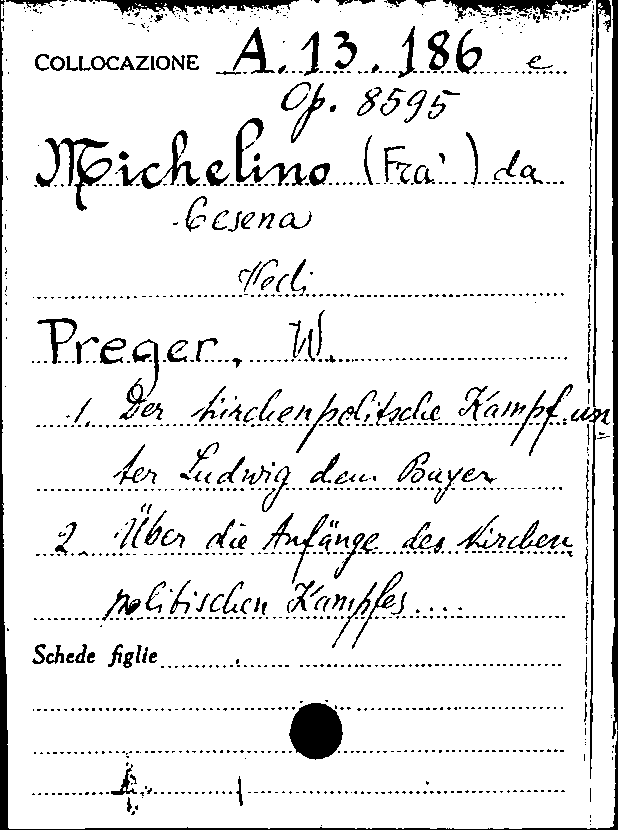 COLLOCAZIONE A. 13. 186 e
Op. 8595
Michelino (Fra') da
Cesena
Vedi
Preger, W.
1. Der Kirchenpolitsche Kampf un
ter Ludwig dem Bayer
2. Über die Anfänge des Kirchen
politischen Kampfes....
Schede figlie